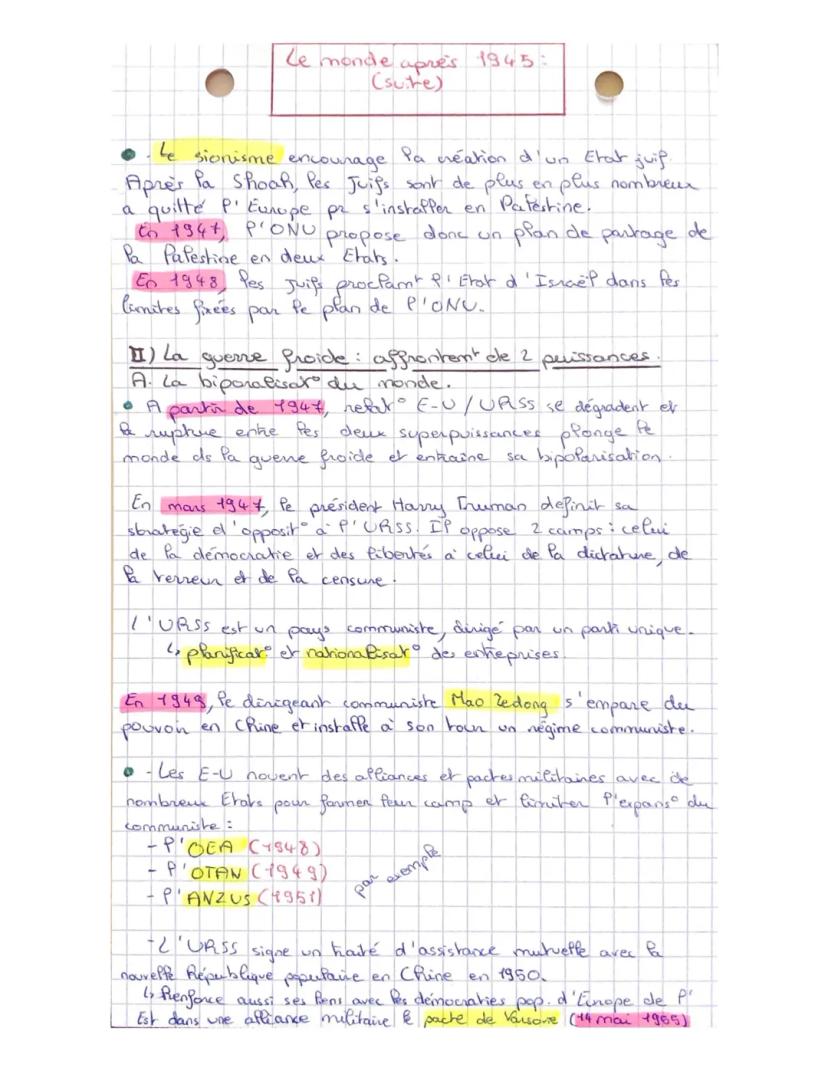 Le monde après 1945 :
(suite)
- Le sionisme encourage la création d'un Etat juif.
Après la Shoah, les Juifs sont de plus en plus nombreux
a quitté l'Europe pr s'installer en Palestine.
En 1947, l'ONU propose donc un plan de partage de
la Palestine en deux Etats.
En 1948, les Juifs proclamt l'Etat d'Israël dans les
limites fixées par le plan de l'ONU.
II) La guerre froide : affrontemt de 2 puissances.
A. La biporalisat° du monde.
A partir de 1947, relat° E-U / URSS se dégradent et
la rupture entre les deux superpuissances plonge le
monde ds la guerre froide et entraine sa bipolarisation.
En mars 1947, le président Harry Truman definit sa
strategie d'opposit° à l'URSS. Il oppose 2 camps : celui
de la démocratie et des libertés à celui de la dictature, de
la terreur et de la censure.
L'URSS est un pays communiste, dirigé par un parti unique.
↳ planificat° et nationalisat° des entreprises.
En 1949, le dirigeant communiste Mao Zedong s'empare du
pouvoir en Chine et installe à son tour un régime communiste.
- Les E-U nouent des alliances et pactes militaires avec de
nombreux Etats pour former leur camp et limiter l'expans° du
communiste :
- l'OEA (1948)
- l'OTAN (1949)
- l'ANZUS (1951)
par exemple
- L'URSS signe un traité d'assistance mutuelle avec la
nouvelle République populaire en Chine en 1950.
↳ Renforce aussi ses liens avec les démocraties pop. d'Europe de l'
Est dans une alliance militaire le pacte de Varsovie (14 mai 1955)